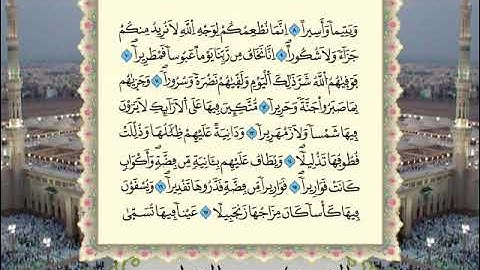 وَيَتِيماً وَأَسِيراً ۝٨ إِنَّمَا نُطْعِمُكُمْ لِوَجْهِ اللَّهِ لَا نُرِيدُ مِنكُمْ
جَزَآءً وَلَا شُكُوراً ۝٩ إِنَّا نَخَافُ مِن رَّبِّنَا يَوْماً عَبُوساً قَمْطَرِيراً ۝١٠
فَوَقَيٰهُمُ اللَّهُ شَرَّ ذَٰلِكَ الْيَوْمِ وَلَقَّيٰهُمْ نَضْرَةً وَسُرُوراً ۝١١ وَجَزَيٰهُم
بِمَا صَبَرُوا جَنَّةً وَحَرِيراً ۝١٢ مُّتَّكِئِينَ فِيهَا عَلَى الْأَرَآئِكِ لَا يَرَوْنَ
فِيهَا شَمْساً وَلَا زَمْهَرِيراً ۝١٣ وَدَانِيَةً عَلَيْهِمْ ظِلَٰلُهَا وَذُلِّلَتْ
قُطُوفُهَا تَذْلِيلاً ۝١٤ وَيُطَافُ عَلَيْهِم بِـَٔانِيَةٍ مِّن فِضَّةٍ وَأَكْوَابٍ
كَانَتْ قَوَارِيراً ۝١٥ قَوَارِيراً مِّن فِضَّةٍ قَدَّرُوهَا تَقْدِيراً ۝١٦ وَيُسْقَوْنَ
فِيهَا كَأْساً كَانَ مِزَاجُهَا زَنجَبِيلاً ۝١٧ عَيْناً فِيهَا تُسَمَّىٰ